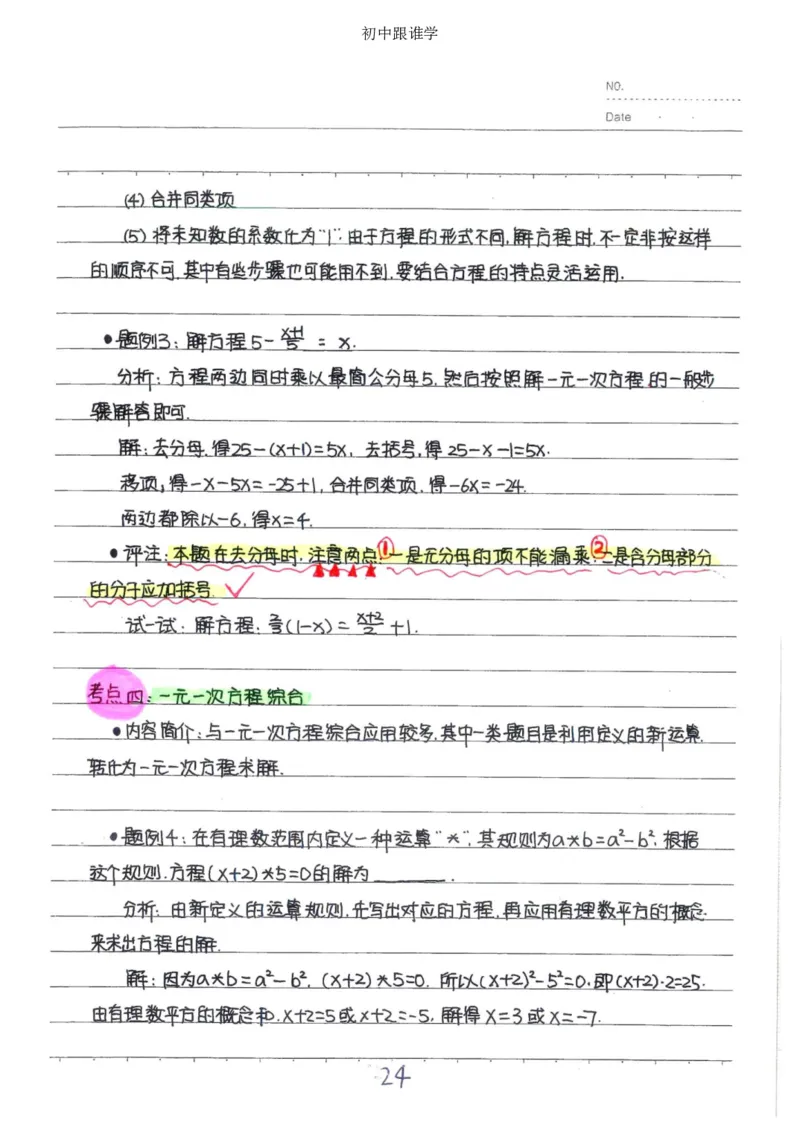 初中跟谁学
NO.
Date
(4) 合并同类项
(5) 将未知数的系数化为"1".由于方程的形式不同,解方程时,不一定非按这样
的顺序不可.其中有些步骤也可能用不到,要结合方程的特点灵活运用.
•题例3:解方程5-(x+1)/5=x.
分析:方程两边同时乘以最简公分母5,然后按照解一元一次方程的一般步
骤解答即可.
解:去分母,得25-(x+1)=5x, 去括号,得25-x-1=5x.
移项,得-x-5x=-25+1,合并同类项,得-6x=-24.
两边都除以-6,得x=4.
•评注:本题在去分母时,注意两点:①一是无分母的项不能漏乘;②二是含分母部分
的分子应加括号.
试一试:解方程: (1-x)=(x+2)/2+1.
考点四:一元一次方程综合
•内容简介:与一元一次方程综合应用较多,其中一类题目是利用定义的新运算,
转化为一元一次方程求解.
•题例4:在有理数范围内定义一种运算"*",其规则为a*b=a²-b²,根据
这个规则.方程(x+2)*5=0的解为________.
分析:由新定义的运算规则,先写出对应的方程,再应用有理数平方的概念
来求出方程的解.
解:因为a*b=a²-b²,(x+2)*5=0,所以(x+2)²-5²=0.即(x+2)·2=25.
由有理数平方的概念和.x+2=5或x+2=-5,解得x=3或x=-7.
24